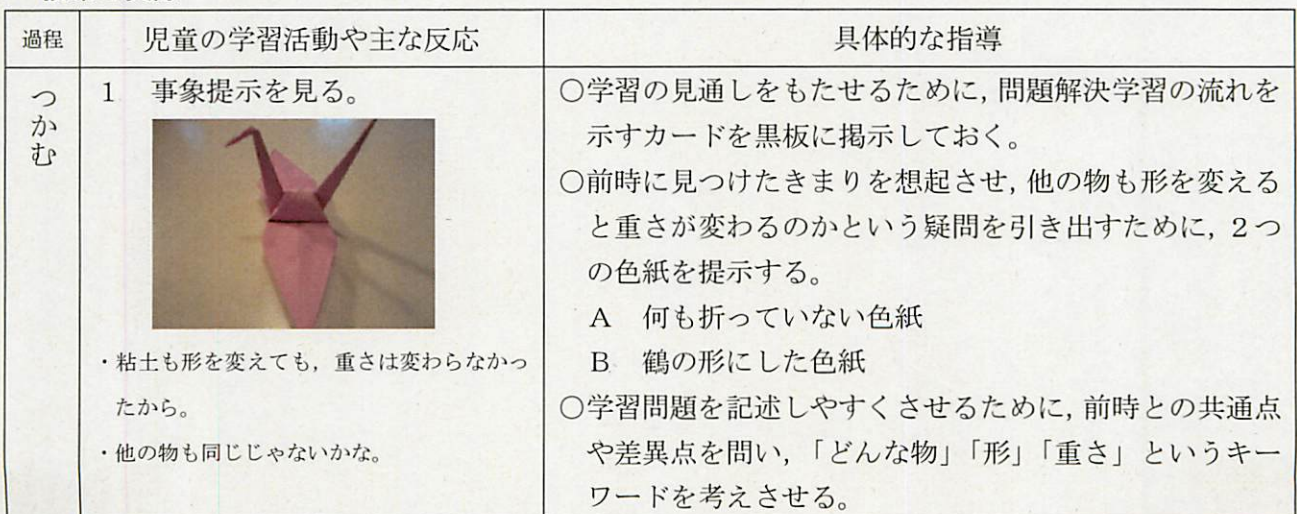 過程
児童の学習活動や主な反応
具体的な指導
つかむ
1　事象提示を見る。
・粘土も形を変えても，重さは変わらなかっ
たから。
・他の物も同じじゃないかな。
○学習の見通しをもたせるために，問題解決学習の流れを
示すカードを黒板に掲示しておく。
○前時に見つけたきまりを想起させ，他の物も形を変える
と重さが変わるのかという疑問を引き出すために，２つ
の色紙を提示する。
A　何も折っていない色紙
B　鶴の形にした色紙
○学習問題を記述しやすくさせるために，前時との共通点
や差異点を問い，「どんな物」「形」「重さ」というキー
ワードを考えさせる。